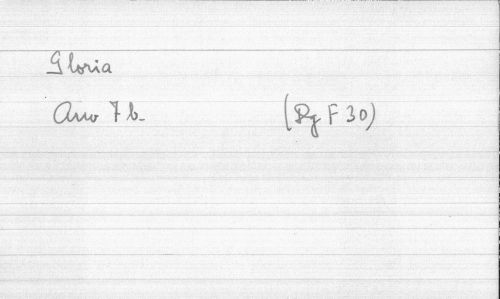 Gloria
Ano 7 b (Pg F 30)